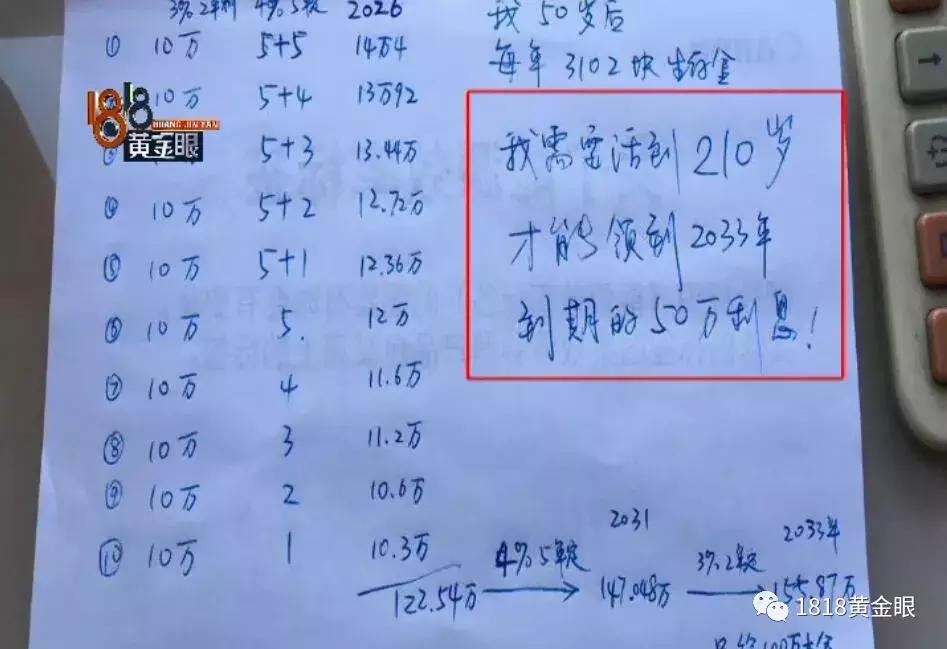 3% 2年利 4% 5年定 2026
① 10万 5+5 14万4
10万 5+4 13万92
10万 5+3 13.44万
④ 10万 5+2 12.72万
⑤ 10万 5+1 12.36万
⑥ 10万 5. 12万
⑦ 10万 4 11.6万
⑧ 10万 3 11.2万
⑨ 10万 2 10.6万
⑩ 10万 1 10.3万
122.54万 4% 5年定 2031 147.048万 3% 2年定 2033年 155.87万
我50岁后
每年3102块生存金
我需要活到210岁
才能领到2033年
到期的50万利息!
1818
HUANG JIN YAN
黄金眼
1818黄金眼